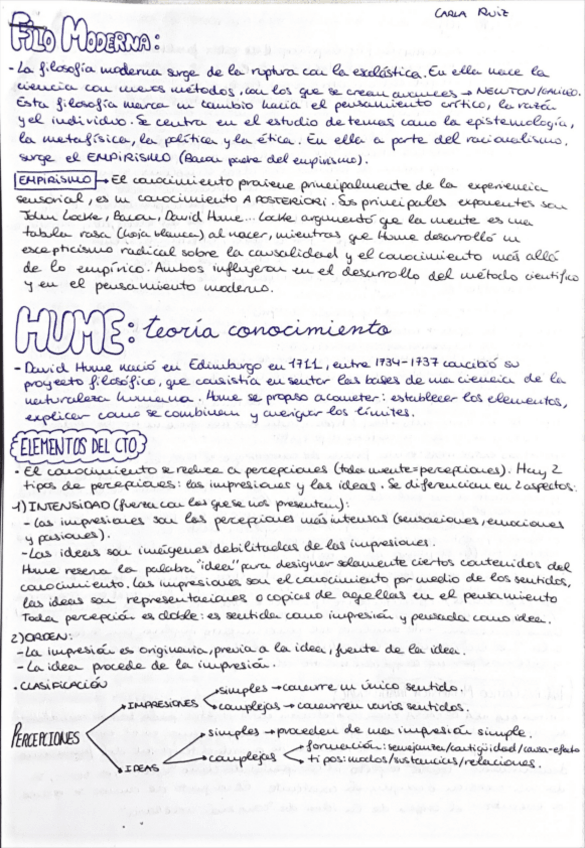 CARLA RUIZ
FILO MODERNA:
- La filosofía moderna surge de la ruptura con la escolástica. En ella nace la
ciencia con nuevos métodos, con los que se crean avances → NEWTON/GALILEO.
Esta filosofía marca un cambio hacia el pensamiento crítico, la razón
y el individuo. Se centra en el estudio de temas como la epistemología,
la metafísica, la política y la ética. En ella a parte del racionalismo,
surge el EMPIRISMO (Bacon padre del empirismo).
EMPIRISMO → El conocimiento proviene principalmente de la experiencia
sensorial, es un conocimiento A POSTERIORI. Sus principales exponentes son
John Locke, Bacon, David Hume... Locke argumentó que la mente es una
tabula rasa (hoja blanca) al nacer, mientras que Hume desarrolló un
escepticismo radical sobre la causalidad y el conocimiento más allá
de lo empírico. Ambos influyeron en el desarrollo del método científico
y en el pensamiento moderno.
HUME: teoría conocimiento
- David Hume nació en Edimburgo en 1711, entre 1734-1737 concibió su
proyecto filosófico, que consistía en sentar las bases de una ciencia de la
naturaleza humana. Hume se propuso acometer: establecer los elementos,
explicar como se combinan y averiguar los límites.
ELEMENTOS DEL CTO
• El conocimiento se reduce a percepciones (toda mente=percepciones). Hay 2
tipos de percepciones: las impresiones y las ideas. Se diferencian en 2 aspectos:
1) INTENSIDAD (fuerza con las que se nos presentan):
- Las impresiones son las percepciones más intensas (sensaciones, emociones
y pasiones).
- Las ideas son imágenes debilitadas de las impresiones.
Hume reserva la palabra "idea" para designar solamente ciertos contenidos del
conocimiento. Las impresiones son el conocimiento por medio de los sentidos,
las ideas son representaciones o copias de aquellas en el pensamiento
Toda percepción es doble: es sentida como impresión y pensada como idea.
2) ORDEN:
- La impresión es originaria, previa a la idea, fuente de la idea.
- La idea procede de la impresión.
• CLASIFICACIÓN
PERCEPCIONES
IMPRESIONES
simples → concurre un único sentido.
complejas → concurren varios sentidos.
IDEAS
simples → proceden de una impresión simple.
complejas
formación: semejantes/contigüidad/causa-efecto
tipos: modos/sustancias/relaciones.